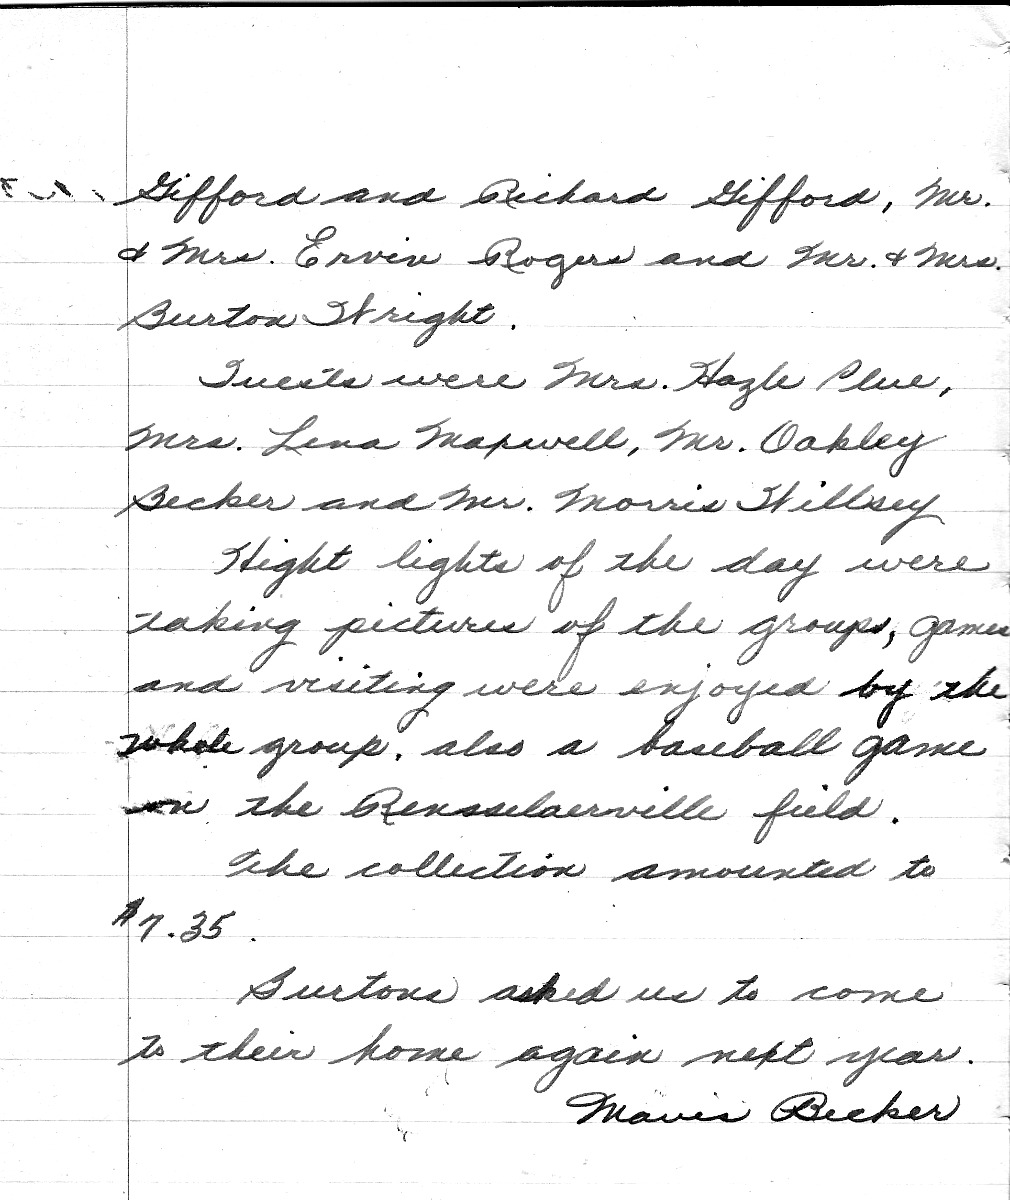 Gifford and Richard Gifford, Mr.
& Mrs. Ervin Rogers and Mr. & Mrs.
Burton Wright.
Guests were Mrs. Hazle Plue,
Mrs. Lena Maxwell, Mr. Oakley
Becker and Mr. Morris Willsey
Hight lights of the day were
taking pictures of the groups, games
and visiting were enjoyed by the
whole group. also a baseball game
on the Rensselaerville field.
The collection amounted to
$7.35.
Burtons asked us to come
to their home again next year.
Mavis Becker